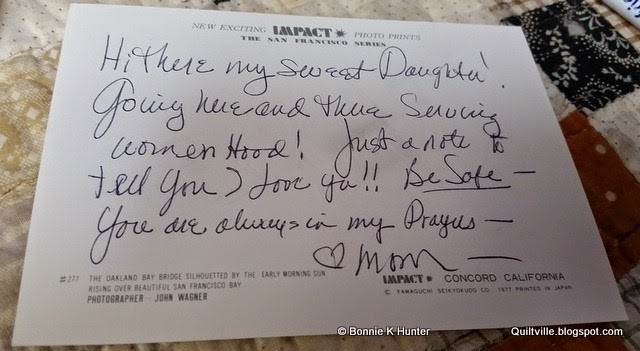 NEW EXCITING IMPACT PHOTO PRINTS
THE SAN FRANCISCO SERIES
Hi there my Sweet Daughter!
Going here and there Serving
women Hood! Just a note to
tell you I love ya!! Be Safe —
You are always in my Prayers —
♡ Mom —
#277 THE OAKLAND BAY BRIDGE SILHOUETTED BY THE EARLY MORNING SUN
RISING OVER BEAUTIFUL SAN FRANCISCO BAY
PHOTOGRAPHER — JOHN WAGNER
IMPACT CONCORD CALIFORNIA
© YAMAGUCHI SEIKYOKUDO CO., 1977 PRINTED IN JAPAN
© Bonnie K Hunter Quiltville.blogspot.com